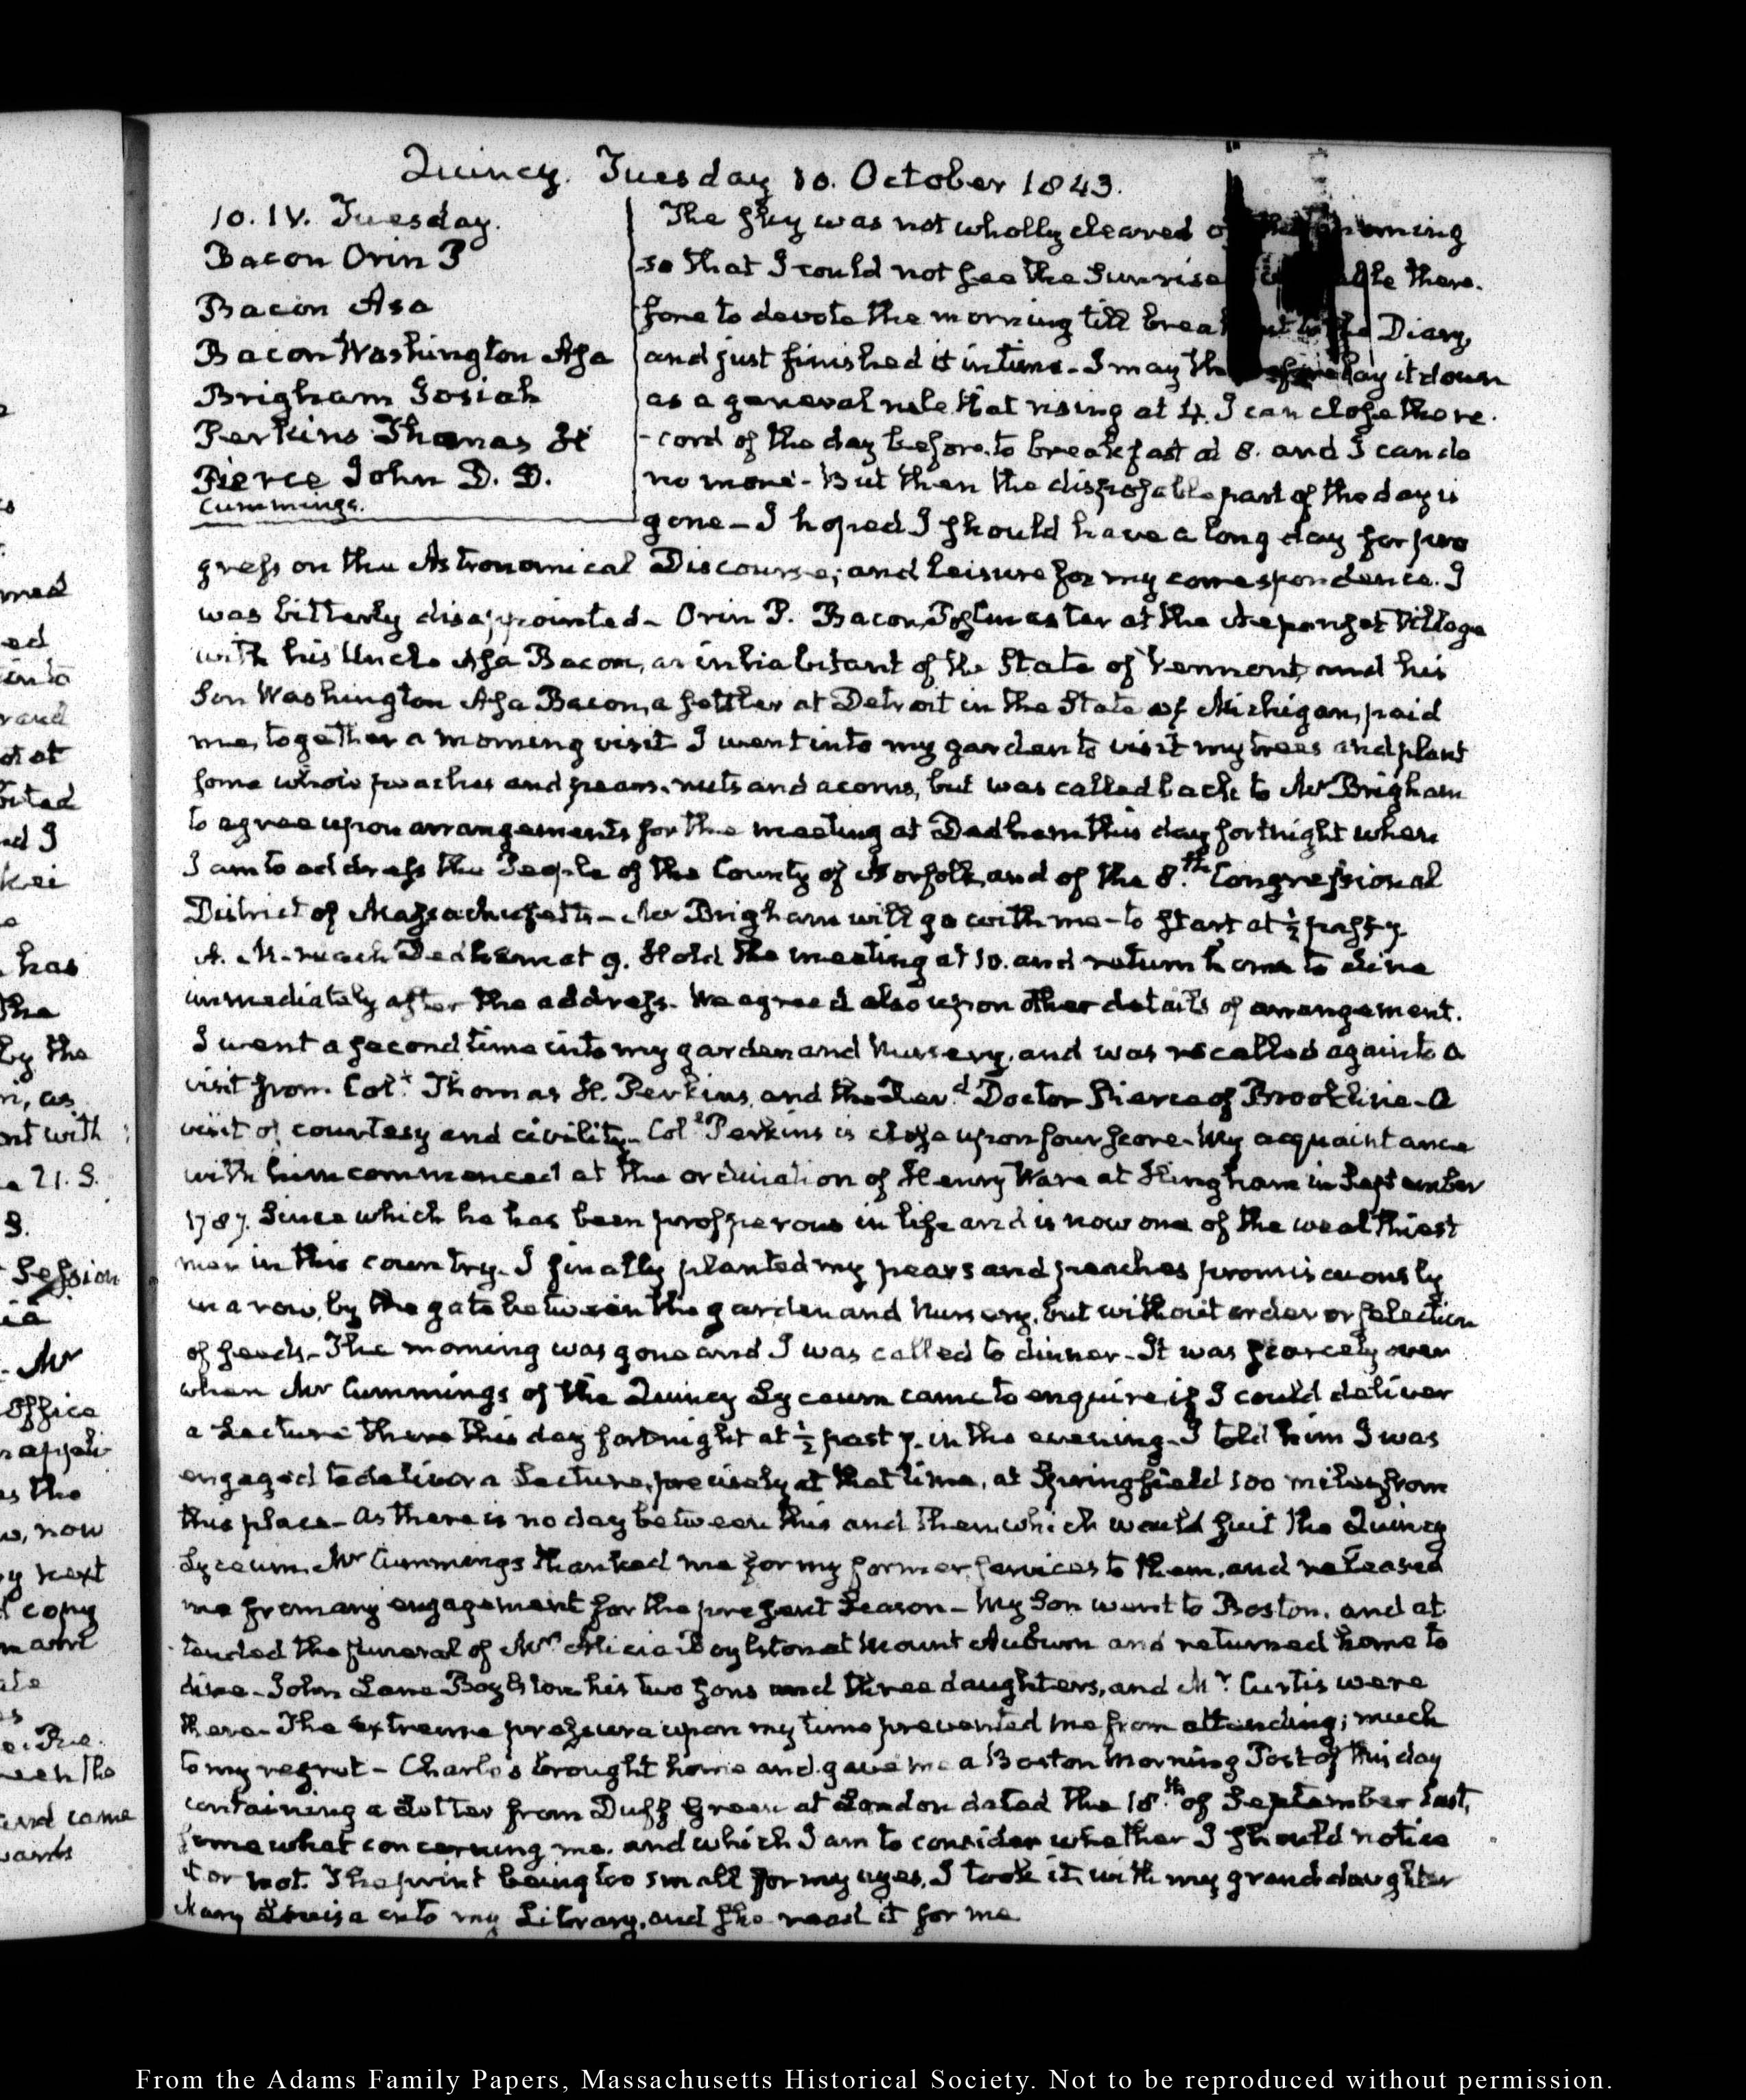 Quincy. Tuesday 10. October 1843.
10. IV. Tuesday.
Bacon Orin P
Bacon Asa
Bacon Washington Asa
Brigham Josiah
Perkins Thomas H
Pierce John D. D.
Cummings.
The sky was not wholly cleared of the morning
so that I could not see the Sunrise able there-
fore to devote the morning till breakfast to the Diary,
and just finished it in time. I may therefore lay it down
as a general rule that rising at 4. I can close the re-
-cord of the day before, to breakfast at 8. and I can do
no more. But then the disposable part of the day is
gone — I hoped I should have a long day for pro
gress on the Astronomical Discourse; and leisure for my correspondence. I
was bitterly disappointed. Orin P. Bacon, Postmaster at the Neponset Village
with his Uncle Asa Bacon, an inhabitant of the State of Vermont, and his
Son Washington Asa Bacon, a settler at Detroit in the State of Michigan, paid
me, together a morning visit. I went into my garden to visit my trees and plant
some whole peaches and pears, nuts and acorns, but was called back to Mr Brigham
to agree upon arrangements for the meeting at Dedham this day fortnight when
I am to address the People of the County of Norfolk, and of the 8.th Congressional
District of Massachusetts — Mr Brigham will go with me — to start at ½ past 7
A. M. reach Dedham at 9. Hold the meeting at 10. and return home to dine
immediately after the address. We agreed also upon other details of arrangement.
I went a second time into my garden and Nursery, and was recalled again to a
visit from Col.l Thomas H. Perkins, and the Rev.d Doctor Pierce of Brookline — a
visit of courtesy and civility. Col.l Perkins is close upon four score. My acquaintance
with him commenced at the ordination of Henry Ware at Hingham in September
1787. Since which he has been prosperous in life and is now one of the wealthiest
men in this country. I finally planted my pears and peaches promiscuously
in a row, by the gate between the garden and Nursery, but without order or selection
of seeds. The morning was gone and I was called to dinner. It was scarcely over
when Mr Cummings of the Quincy Lyceum came to enquire if I could deliver
a Lecture there this day fortnight at ½ past 7. in the evening. I told him I was
engaged to deliver a Lecture, precisely at that time, at Springfield 100 miles from
this place — As there is no day between this and then which would suit the Quincy
Lyceum, Mr Cummings thanked me for my former services to them, and released
me from any engagement for the present Season — My Son went to Boston, and at
tended the funeral of Mrs Alicia Boylston at Mount Auburn and returned home to
dine. John Lane Boylston his two sons and three daughters, and Mr Curtis were
there. The extreme pressure upon my time prevented me from attending; much
to my regret — Charles brought home and gave me a Boston Morning Post of this day
containing a Letter from Duff Green at London dated the 18.th of September last,
somewhat concerning me, and which I am to consider whether I should notice
it or not. The print being too small for my eyes, I took it with my granddaughter
Mary Louisa into my Library, and she read it for me
From the Adams Family Papers, Massachusetts Historical Society. Not to be reproduced without permission.